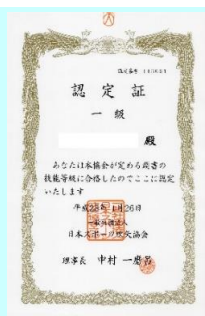 認定証
一級
殿
あなたは本協会が定める
技能等級に合格したのでここに認定
いたします
平成28年1月26日
一般社団法人
日本スポーツ吹矢協会
理事長 中村一